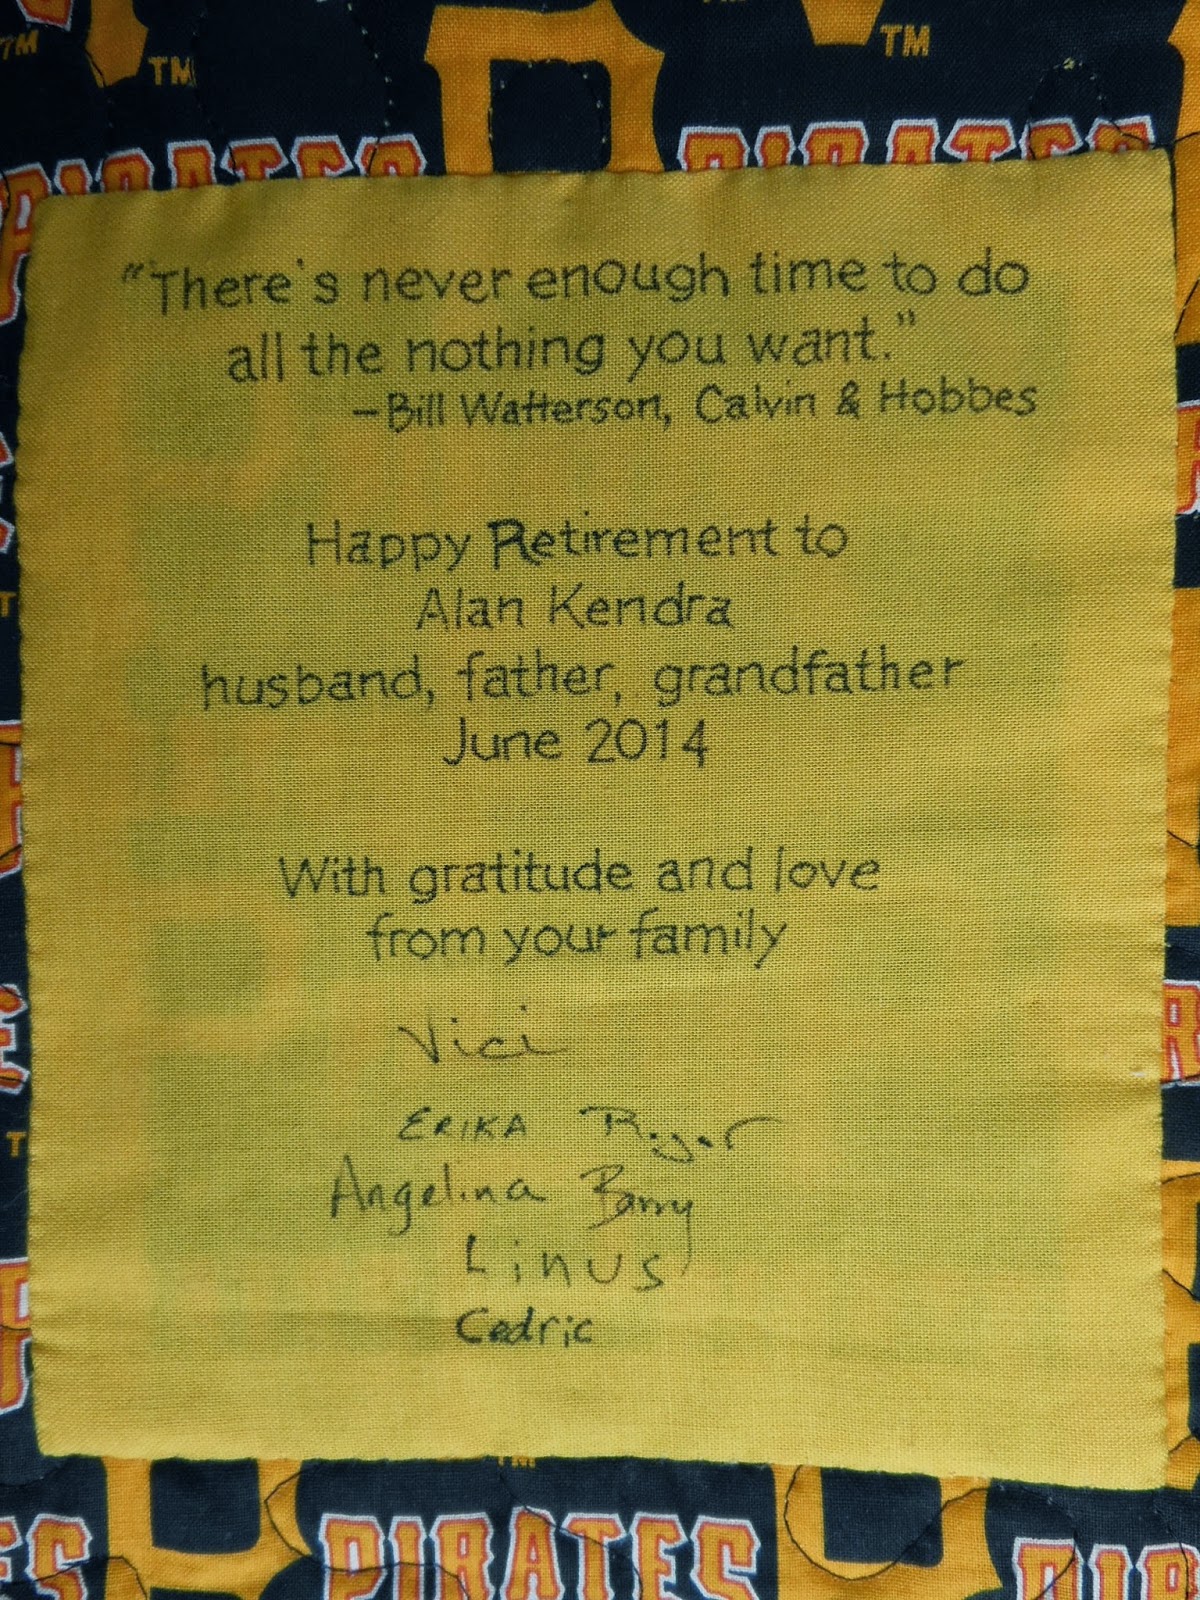 TM
TM
TM
PIRATES
PIRATES
“There's never enough time to do
all the nothing you want.”
–Bill Watterson, Calvin & Hobbes
Happy Retirement to
Alan Kendra
husband, father, grandfather
June 2014
With gratitude and love
from your family
Vici
ERIKA Roger
Angelina Barry
Linus
Cedric
PIRATES